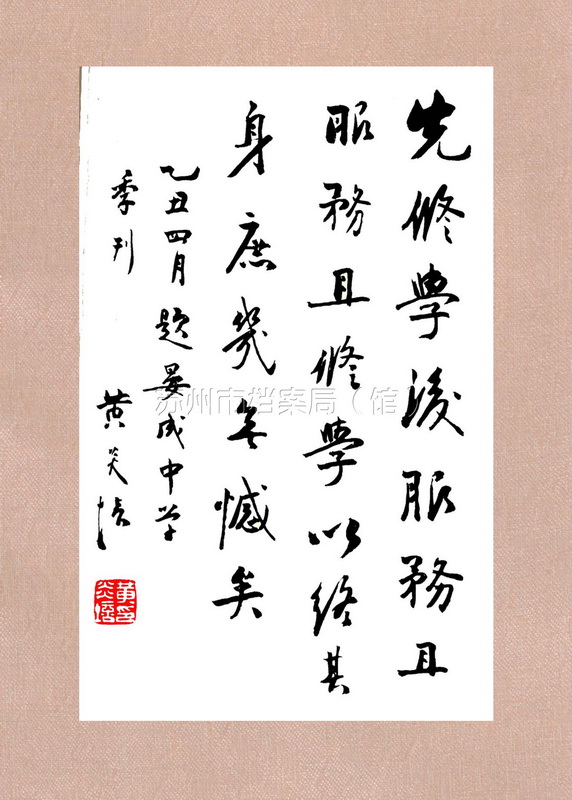 先修學後服務且
服務且修學以終其
身庶幾無憾矣
乙丑四月題晏成中学
季刊
黄炎培
黄炎培
苏州市档案局（馆）